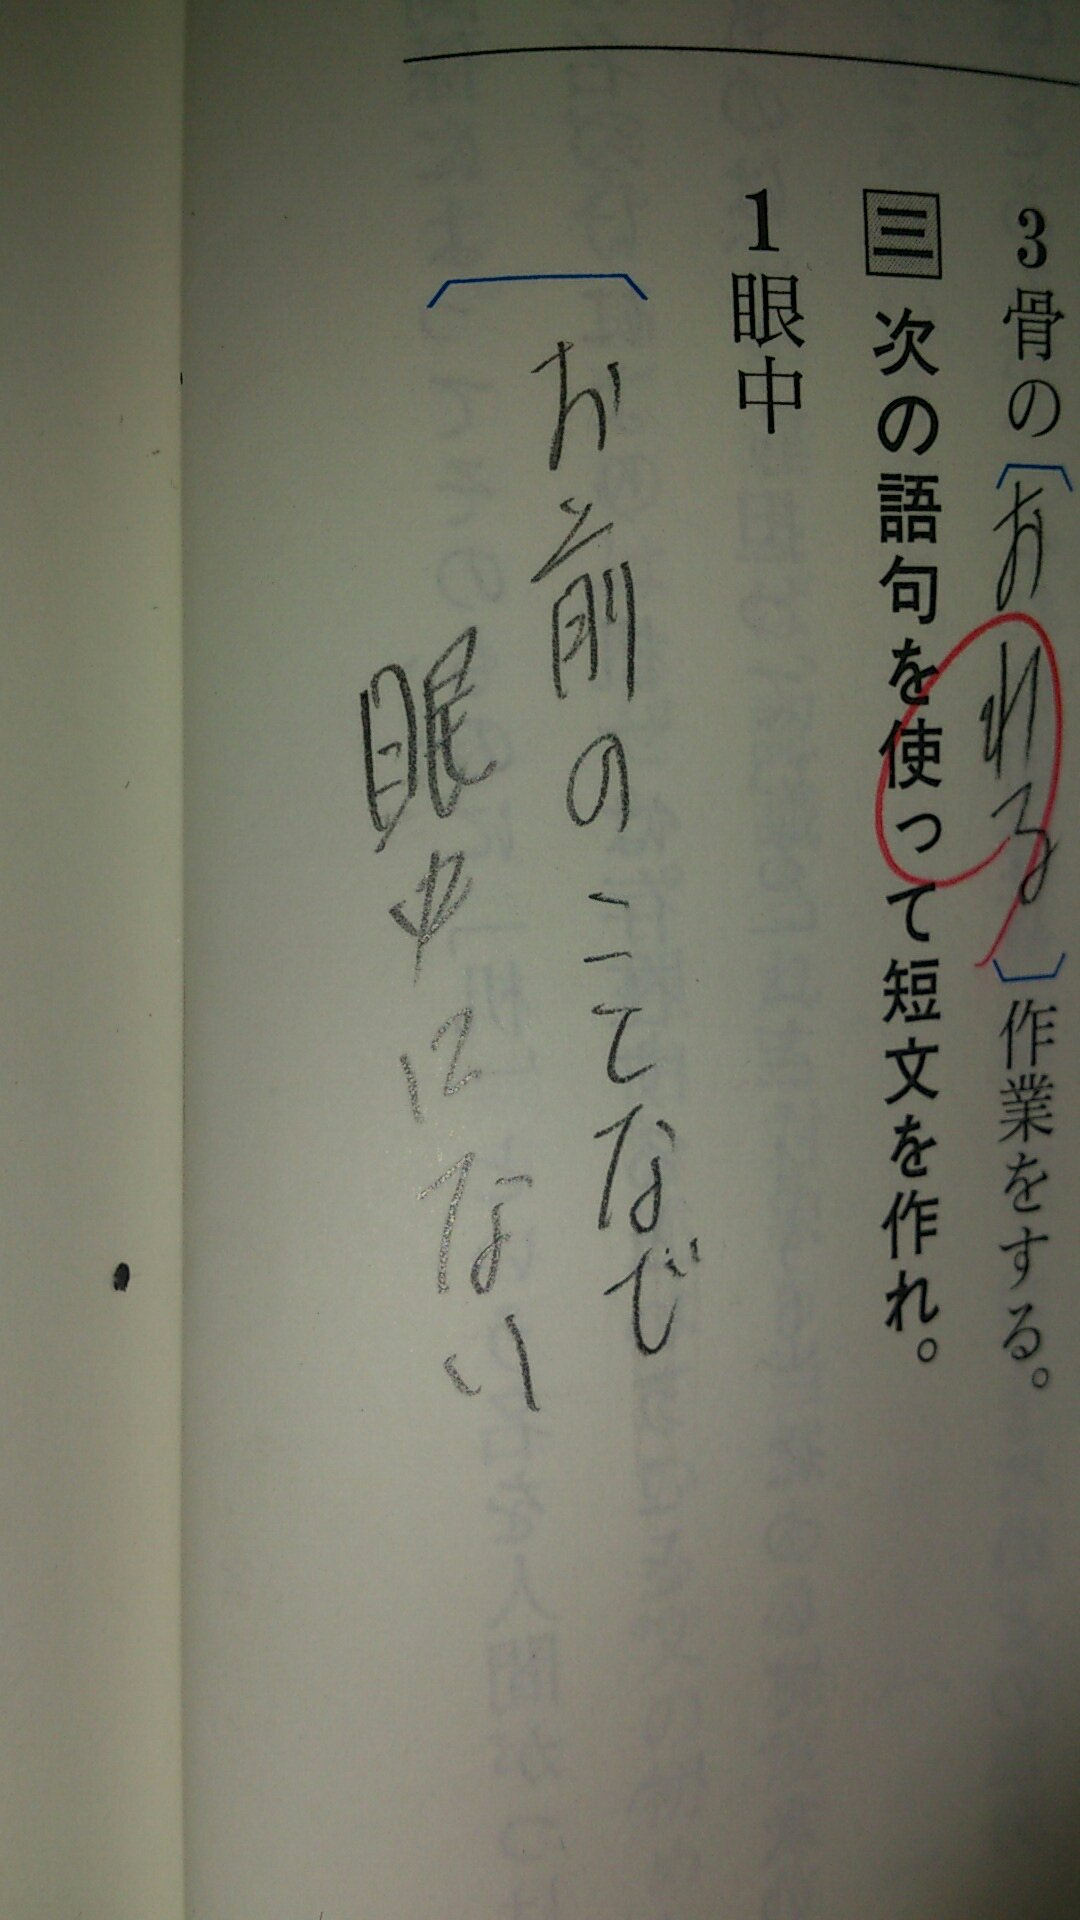 3 骨の〔おれる〕作業をする。
三 次の語句を使って短文を作れ。
1 眼中
〔お前のこてなど
眼中にない